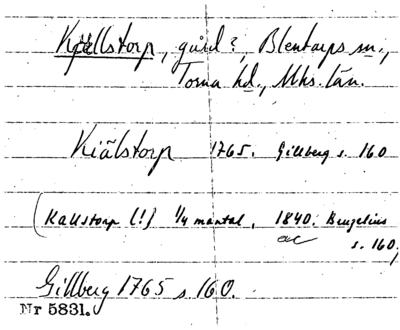 Kjällstorp, gård?, Blentarps sn.,
Torna hd., Mhs. län.
Kiälstorp 1765. Gillberg s. 160
(Kallstorp (!) 1/4 mantal. 1840. Bexelius
ac s. 160)
Gillberg 1765 s 160.
Nr 5831.